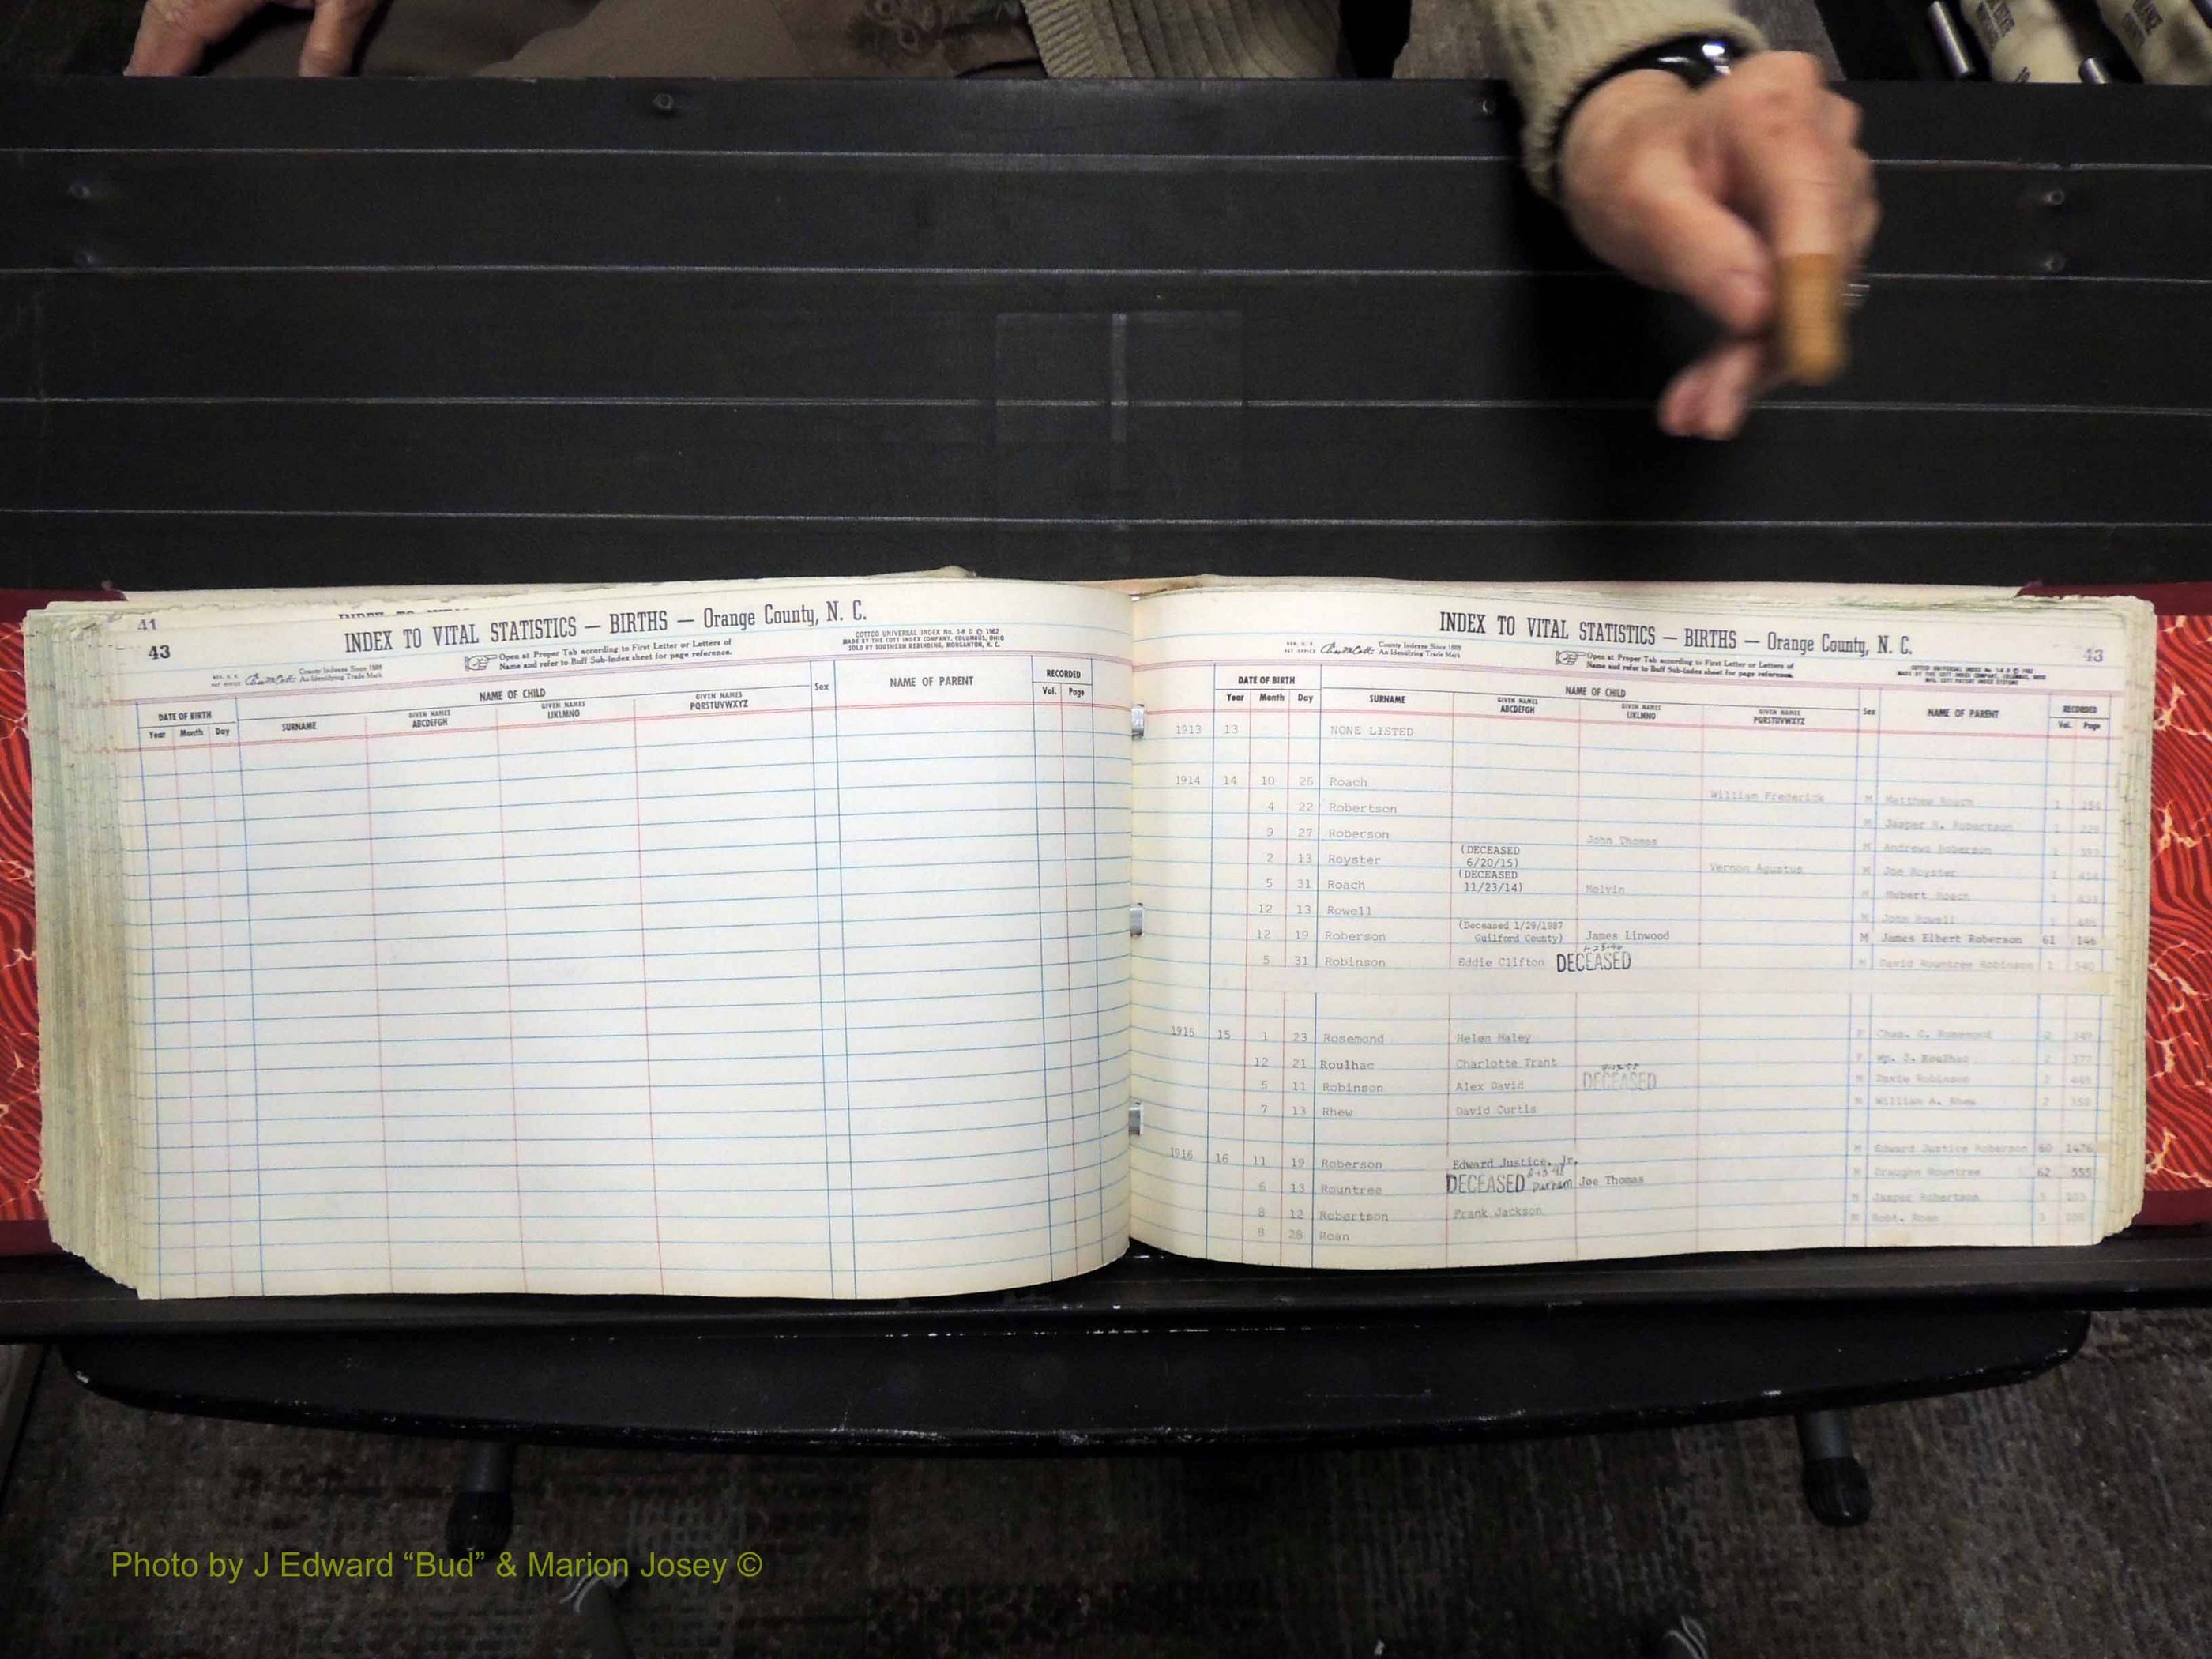 41
43
INDEX TO VITAL STATISTICS — BIRTHS — Orange County, N. C.
County Indexes Since 1888
An Identifying Trade Mark
Open at Proper Tab according to First Letter or Letters of
Name and refer to Buff Sub-Index sheet for page reference.
COTTCO UNIVERSAL INDEX No. 1-8 D © 1962
MADE BY THE COTT INDEX COMPANY, COLUMBUS, OHIO
SOLD BY SOUTHERN REBINDING, MORGANTON, N. C.
DATE OF BIRTH NAME OF CHILD Sex NAME OF PARENT RECORDED
Year Month Day SURNAME GIVEN NAMES ABCDEFGH GIVEN NAMES IJKLMNO GIVEN NAMES PQRSTUVWXYZ Vol. Page
INDEX TO VITAL STATISTICS — BIRTHS — Orange County, N. C.
43
County Indexes Since 1888
An Identifying Trade Mark
Open at Proper Tab according to First Letter or Letters of
Name and refer to Buff Sub-Index sheet for page reference.
DATE OF BIRTH NAME OF CHILD Sex NAME OF PARENT RECORDED
Year Month Day SURNAME GIVEN NAMES ABCDEFGH GIVEN NAMES IJKLMNO GIVEN NAMES PQRSTUVWXYZ Vol. Page
1913 13 NONE LISTED
1914 14 10 26 Roach William Frederick M Matthew Roach 1
4 22 Robertson M Jasper Robertson
9 27 Roberson John Thomas M Andrews Roberson
2 13 Royster (DECEASED 6/20/15) Vernon Agustus M Joe Royster 1
5 31 Roach (DECEASED 11/23/14) Melvin M Hubert Roach 1
12 13 Rowell M John Rowell 1
12 19 Roberson (Deceased 1/29/1987 Guilford County) James Linwood M James Elbert Roberson 61 146
5 31 Robinson Eddie Clifton DECEASED M David Rountree Robinson
1915 15 1 23 Rosemond Helen Haley F Chas. C. Rosemond 2
12 21 Roulhac Charlotte Trant F Wm. S. Roulhac 2 377
5 11 Robinson Alex David DECEASED M Robinson 2
7 13 Rhew David Curtis M William A. Rhew 2
1916 16 11 19 Roberson Edward Justice, Jr. M Edward Justice Roberson 60 1476
6 13 Rountree DECEASED Durham Joe Thomas M Rountree 62 555
8 12 Robertson Frank Jackson M Jasper Robertson
8 28 Roan M Robt. Roan
Photo by J Edward “Bud” & Marion Josey ©